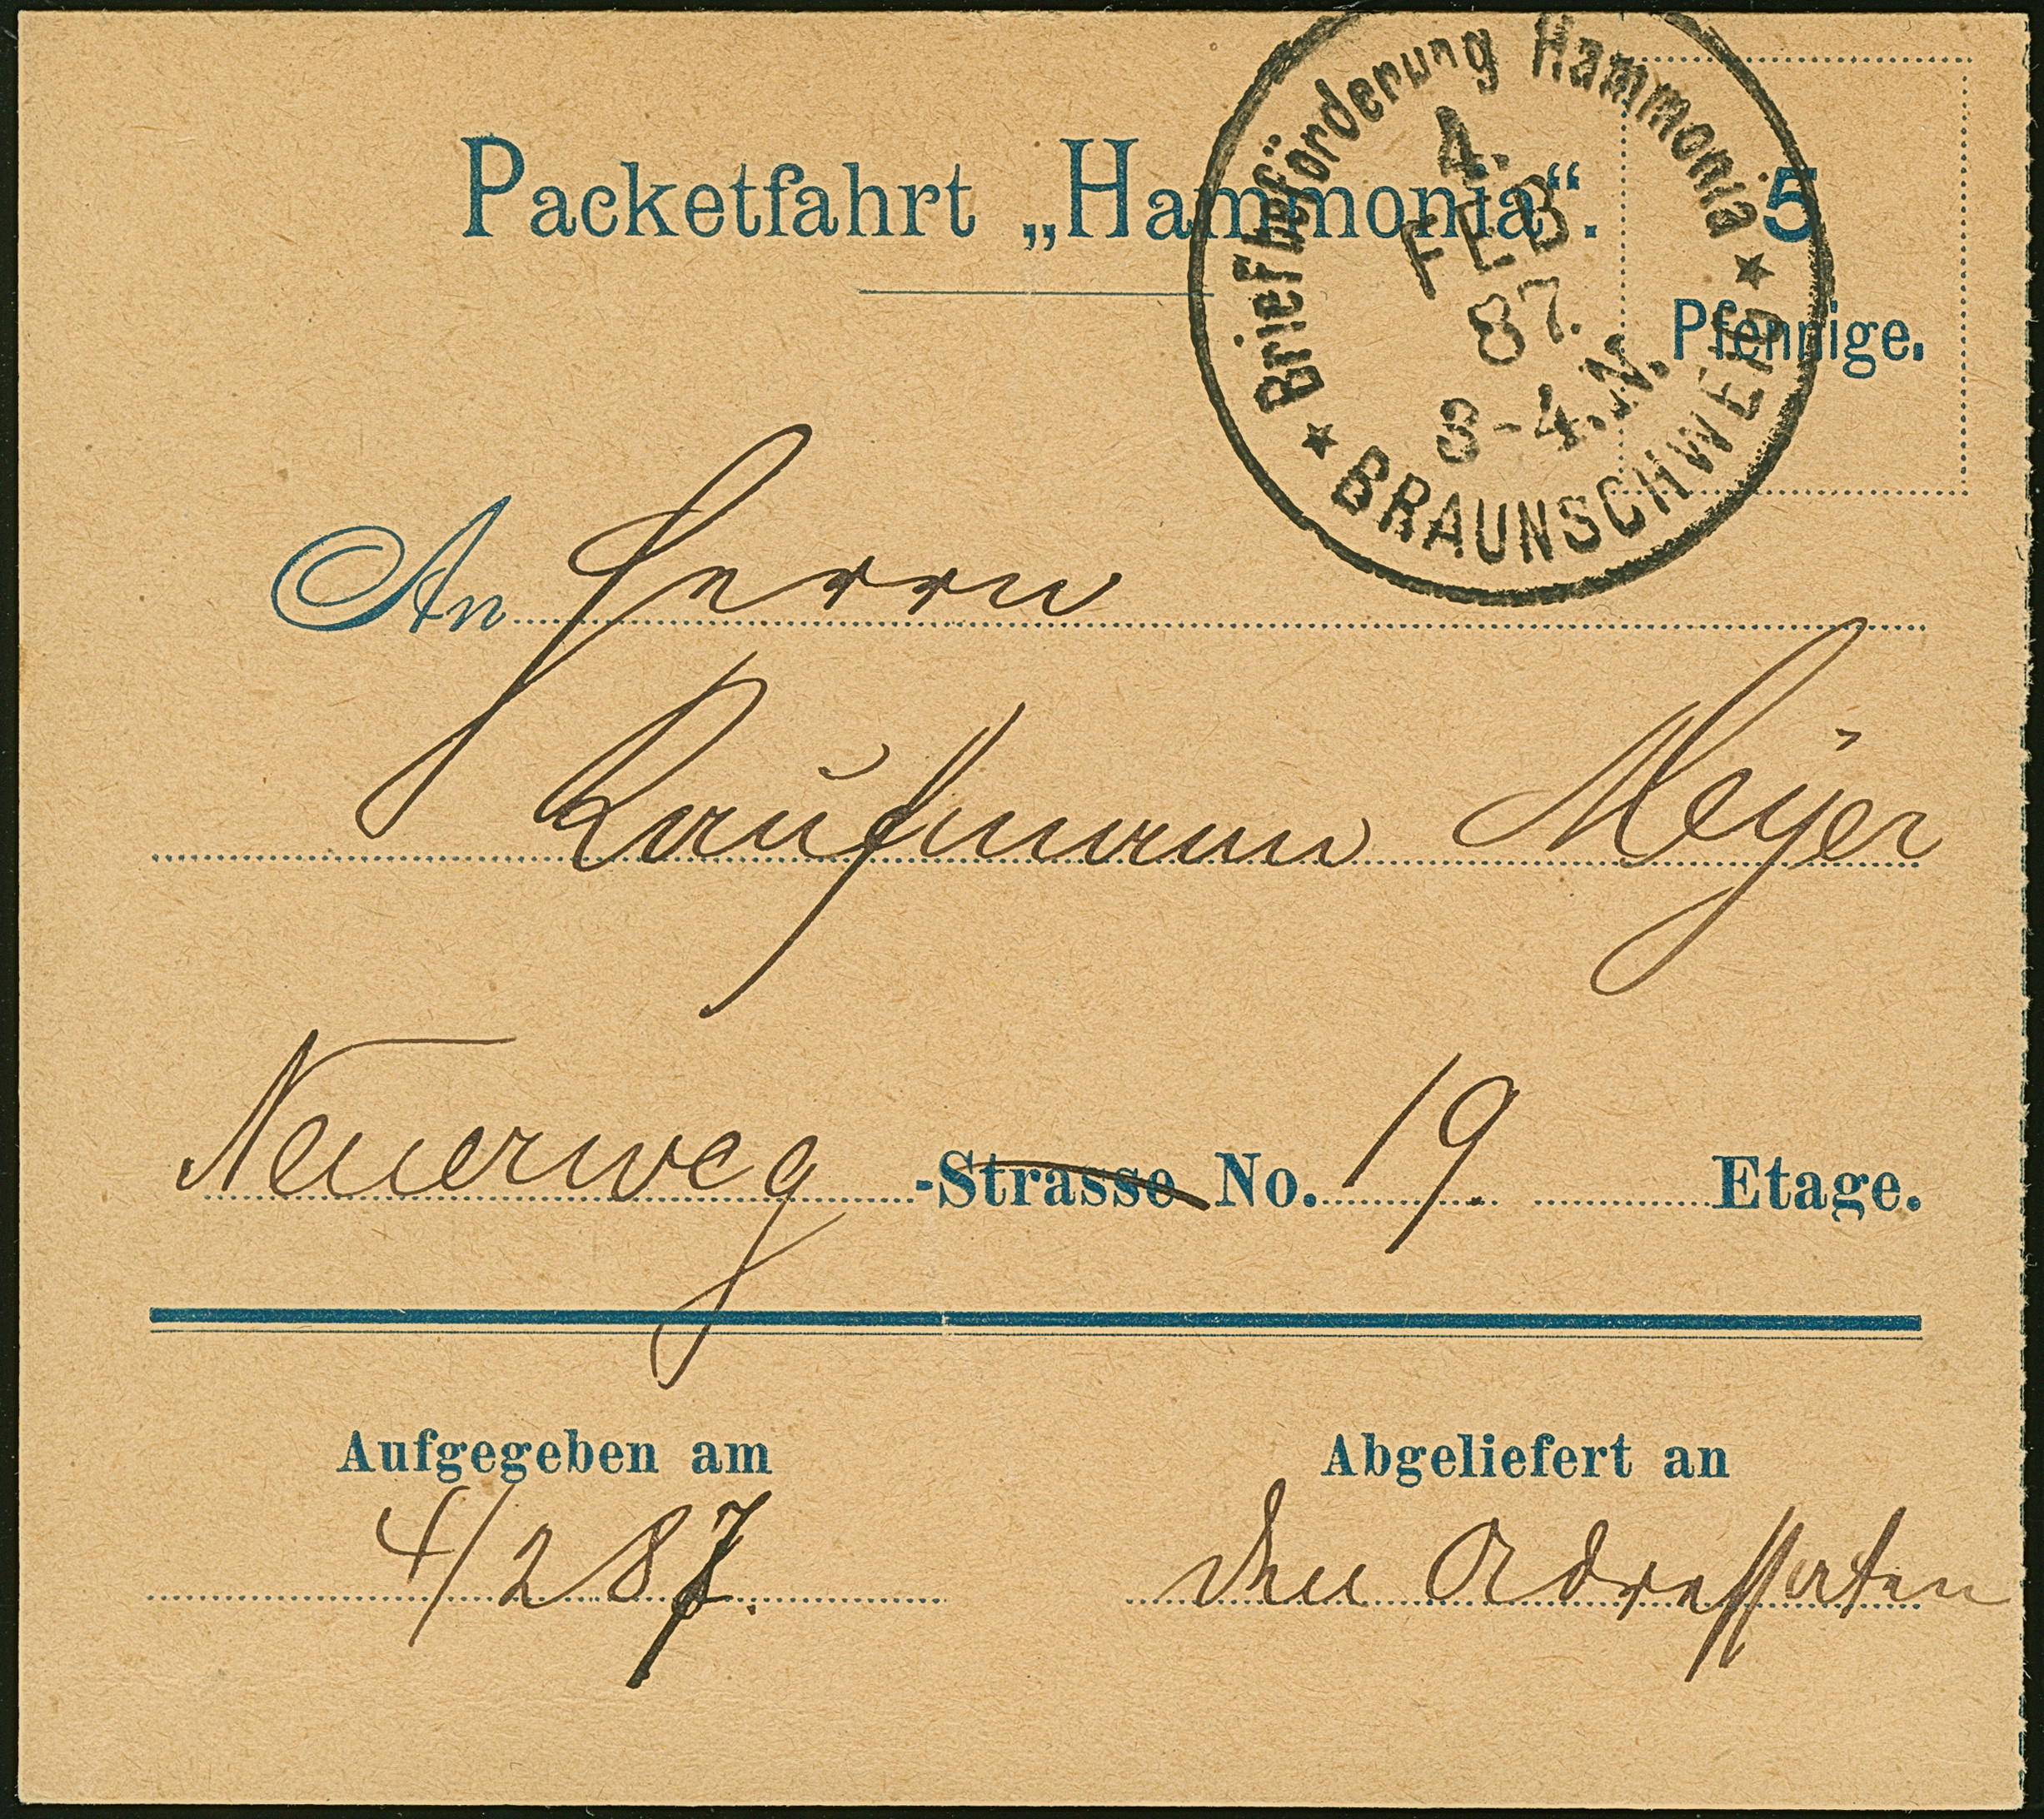 Packetfahrt „Hammonia“.
5
Pfennige.
Briefbeförderung Hammonia
4.
FEB
87.
3-4.N.
★ BRAUNSCHWEIG ★
An Herrn
Kaufmann Meyer
Neuerweg -Strasse No. 19. Etage.
Aufgegeben am
4/2 87.
Abgeliefert an
den Adressaten